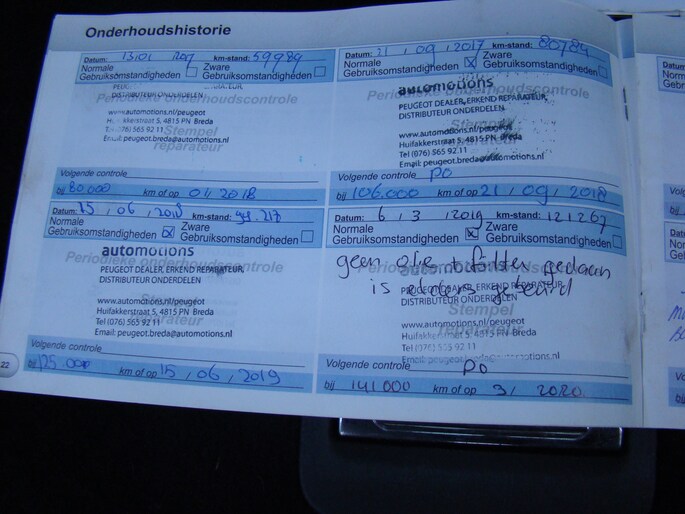 Onderhoudshistorie
Datum: 13/01/ km-stand: 59984
Normale Gebruiksomstandigheden
Zware Gebruiksomstandigheden
Periodieke onderhoudscontrole
DISTRIBUTEUR ONDERDELEN
www.automotions.nl/peugeot
Huifakkerstraat 5, 4815 PN Breda
Tel (076) 565 92 11
Email: peugeot.breda@automotions.nl
Stempel reparateur
Volgende controle
bij 80.000 km of op 01/2018
Datum: 21/09/2017 km-stand: 80784
Normale Gebruiksomstandigheden
Zware Gebruiksomstandigheden
automotions
Periodieke onderhoudscontrole
PEUGEOT DEALER, ERKEND REPARATEUR,
DISTRIBUTEUR ONDERDELEN.
www.automotions.nl/peugeot
Huifakkerstraat 5, 4815 PN Breda
Tel (076) 565 92 11
Email: peugeot.breda@automotions.nl
Stempel reparateur
Volgende controle PO
bij 106.000 km of op 21/09/2018
Datum: 15/06/2018 km-stand:
Normale Gebruiksomstandigheden
Zware Gebruiksomstandigheden
automotions
Periodieke onderhoudscontrole
PEUGEOT DEALER, ERKEND REPARATEUR,
DISTRIBUTEUR ONDERDELEN
www.automotions.nl/peugeot
Huifakkerstraat 5, 4815 PN Breda
Tel (076) 565 92 11
Email: peugeot.breda@automotions.nl
Stempel reparateur
Volgende controle
bij 125.000 km of op 15/06/2019
Datum: 6/3/2019 km-stand: 121267
Normale Gebruiksomstandigheden
Zware Gebruiksomstandigheden
geen olie + filter gedaan
is eerder gebeurd
Periodieke onderhoudscontrole
automotions
PEUGEOT DEALER, ERKEND REPARATEUR,
DISTRIBUTEUR ONDERDELEN
www.automotions.nl/peugeot
Huifakkerstraat 5, 4815 PN Breda
Tel (076) 565 92 11
Email: peugeot.breda@automotions.nl
Stempel reparateur
Volgende controle PO
bij 141000 km of op 3/2020
22